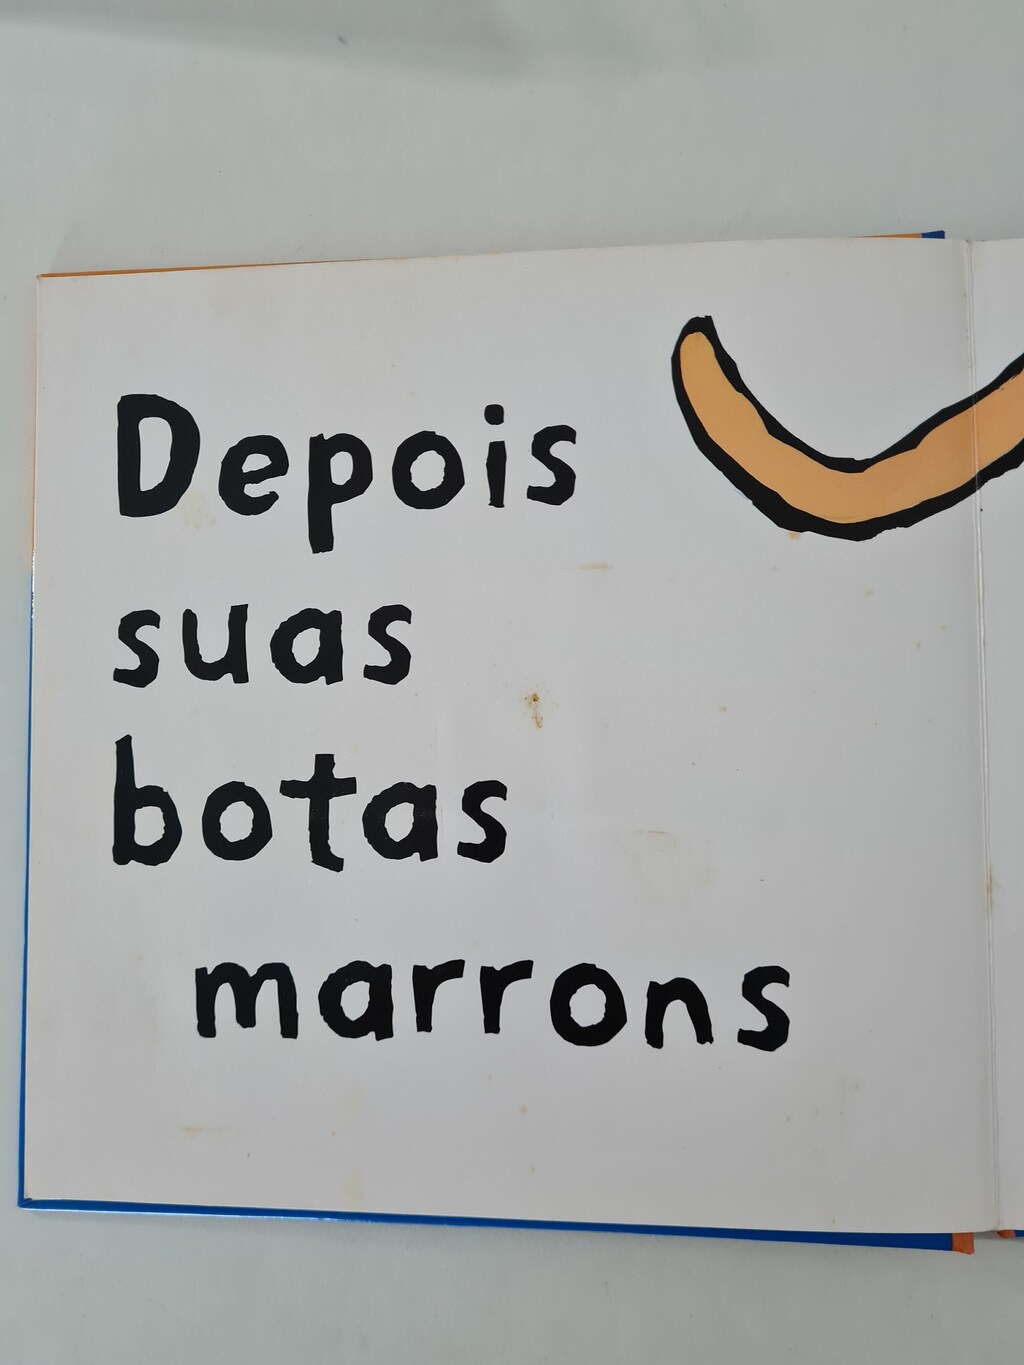 Depois
suas
botas
marrons